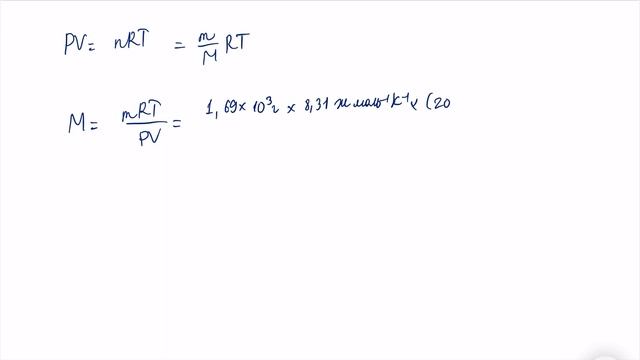 PV = nRT = m/M RT
M = mRT/PV = 1,69 × 10³ г × 8,31 Ж моль⁻¹ К⁻¹ × (20